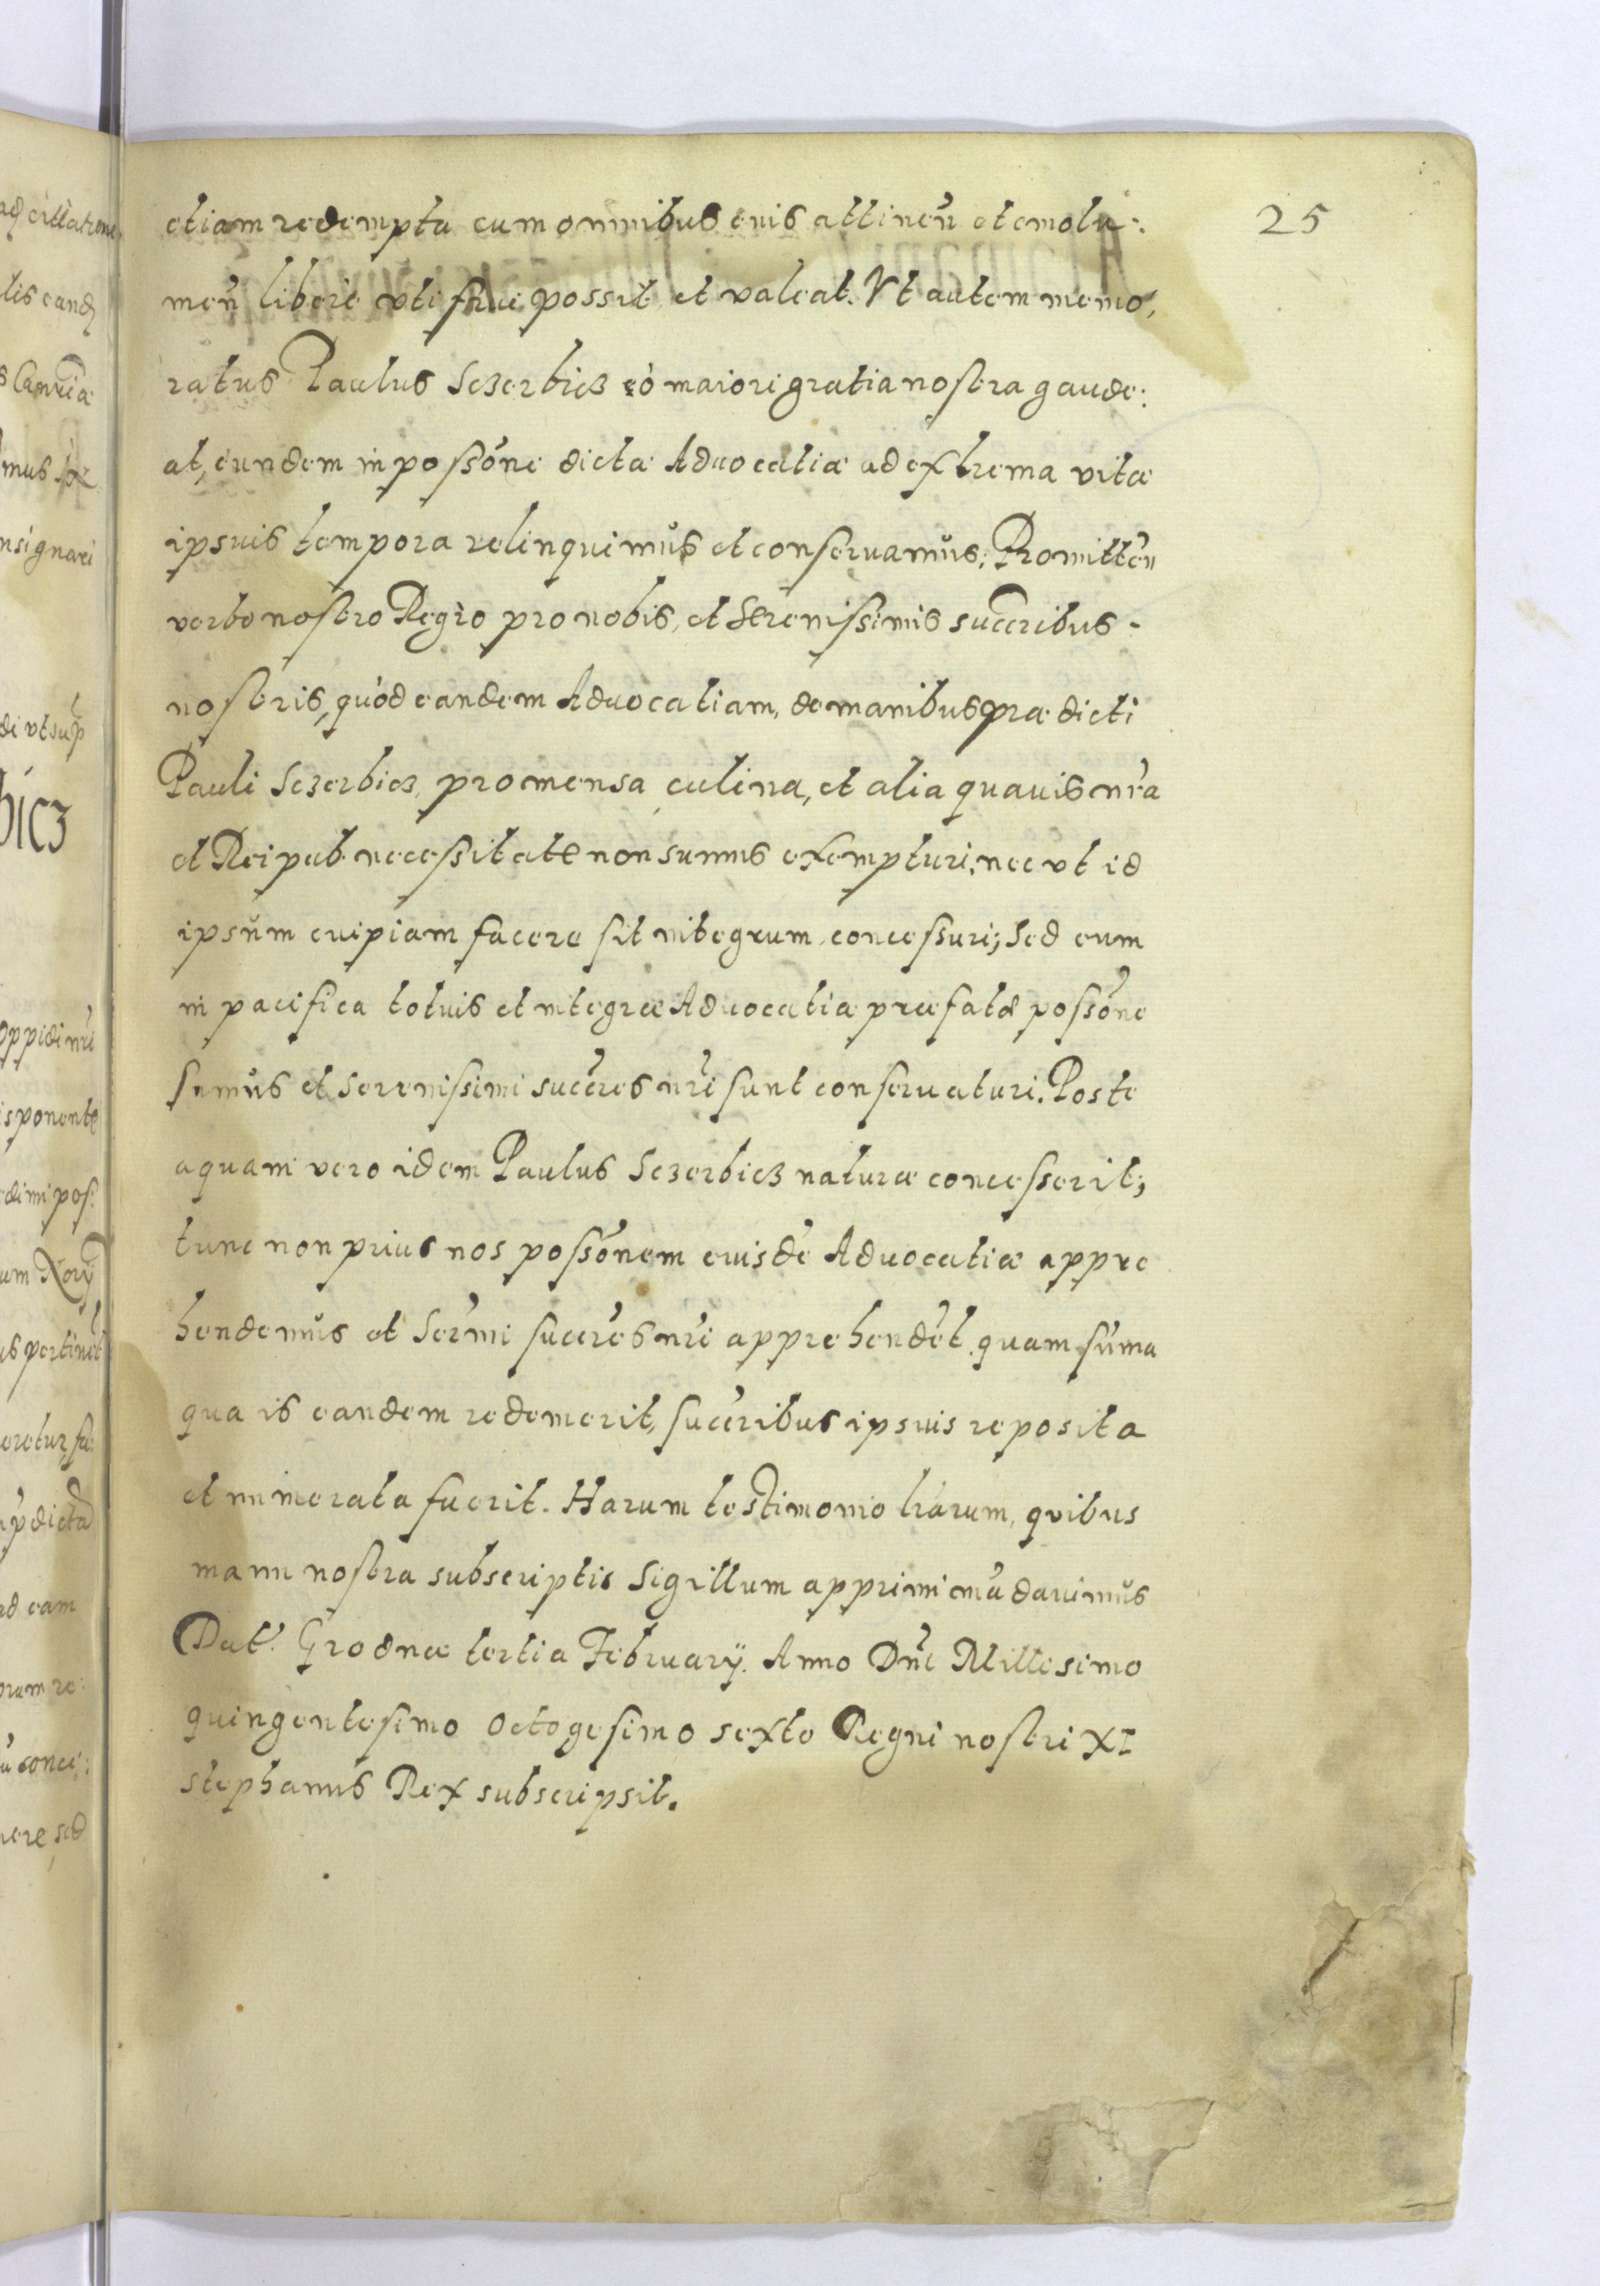 25
etiam redempta cum omnibus euis attineñ et emolu:
meñ libere vti frue possit et valeat. Vt autem memo,
ratus Paulus Sczerbicz eò maiori gratia nostra gaude:
at, eundem in possone dictæ Aduocatiæ ad extrema vitæ
ipsuis tempora relinquimus et conseruamus: Promitteñ
verbo nostro Regio pro nobis, et Serenissimis succribus
nostris, quòd eandem Aduocatiam, de manibus prædicti
Pauli Sczerbicz, pro mensa culina, et alia quauis nra
et Reipub necessitate non sumus exempturi, nec vt id
ipsum cuipiam facere sit integrum concessuri; Sed eum
in pacifica totuis et integræ Aduocatiæ præfatæ possone
sumus et Serenissimi succres nri sunt conseruaturi. Poste
aquam vero idem Paulus Sczerbicz naturæ concesserit;
tunc non prius nos possonem euisde Aduocatiæ appre
hendemus et Sermi succres nri apprehendet quam suma
qua is eandem redemerit, succribus ipsuis reposita
et numerata fuerit. Harum testimonio lrarum, quibus
manu nostra subscriptis Sigillum apprimi madauimus
Dat. Grodnæ tertia February. Anno Dni Millesimo
quingentesimo Octogesimo sexto Regni nostri XI
Stephanus Rex subscripsit.